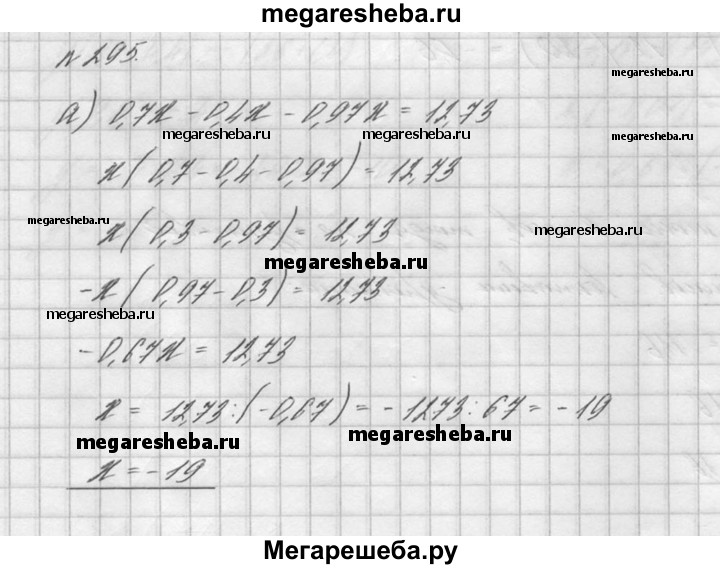 megaresheba.ru
№ 295.
megaresheba.ru
а) 0,7x - 0,4x - 0,97x = 12,73
megaresheba.ru megaresheba.ru megaresheba.ru
x(0,7 - 0,4 - 0,97) = 12,73
megaresheba.ru
x(0,3 - 0,97) = 12,73 megaresheba.ru
megaresheba.ru
-x(0,97 - 0,3) = 12,73
megaresheba.ru
-0,67x = 12,73
x = 12,73:(-0,67) = -1273:67 = -19
megaresheba.ru megaresheba.ru
x = -19
Мегарешеба.ру